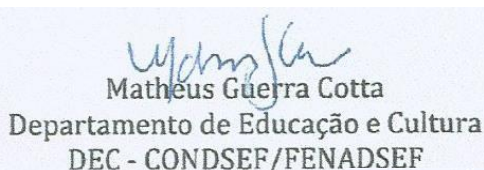 Matheus Guerra Cotta
Departamento de Educação e Cultura
DEC - CONDSEF/FENADSEF